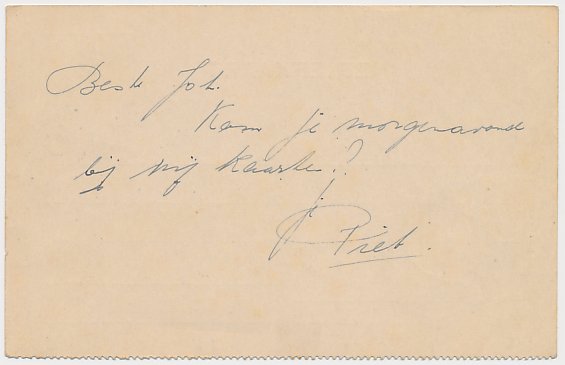 Beste Joh.
Kom je morgenavond
bij mij kaarten?
je
Piet.